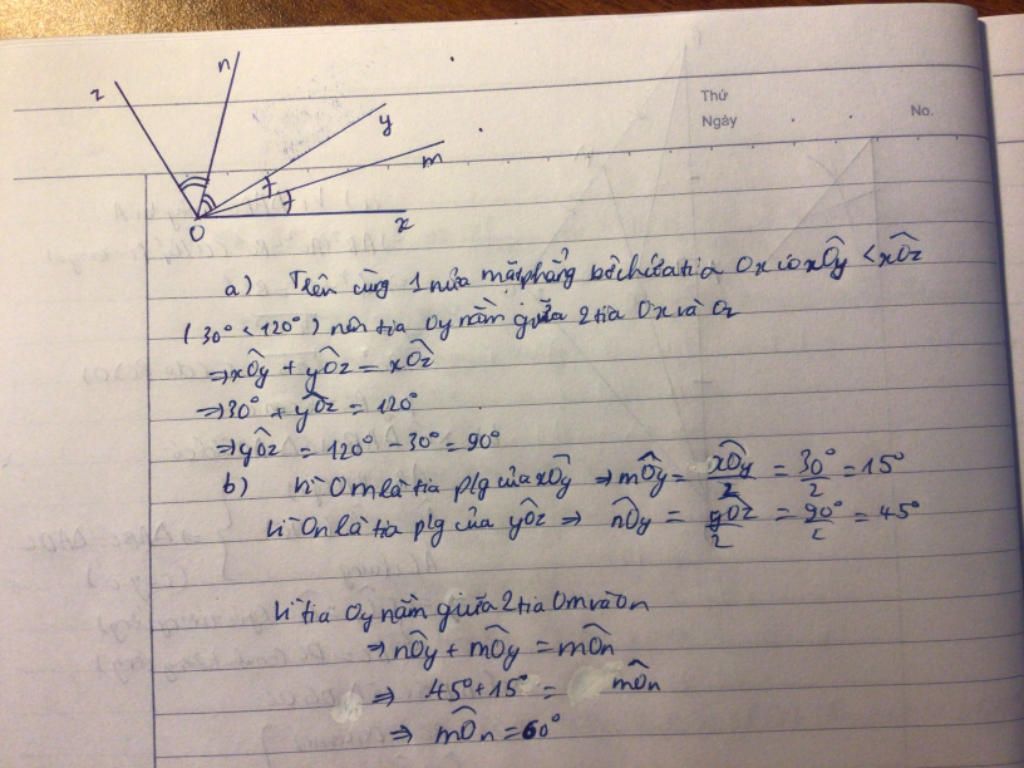 z
n
y
m
x
O
Thứ
Ngày
No.
a) Trên cùng 1 nửa mặt phẳng bờ chứa tia Ox có xÔy < xÔz
(30° < 120°) nên tia Oy nằm giữa 2 tia Ox và Oz
⇒ xÔy + yÔz = xÔz
⇒ 30° + yÔz = 120°
⇒ yÔz = 120° - 30° = 90°
b) Vì Om là tia p/g của xÔy ⇒ mÔy = xÔy/2 = 30°/2 = 15°
Vì On là tia p/g của yÔz ⇒ nÔy = yÔz/2 = 90°/2 = 45°
Vì tia Oy nằm giữa 2 tia Om và On
⇒ nÔy + mÔy = mÔn
⇒ 45° + 15° = mÔn
⇒ mÔn = 60°